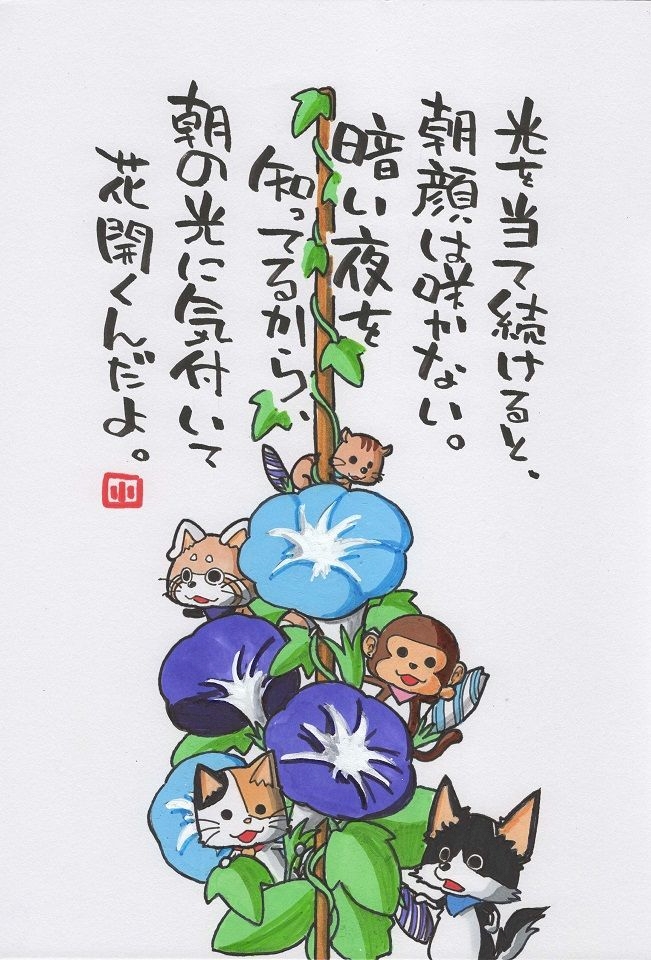 光を当て続けると、
朝顔は咲かない。
暗い夜を
知ってるから、
朝の光に気付いて
花開くんだよ。